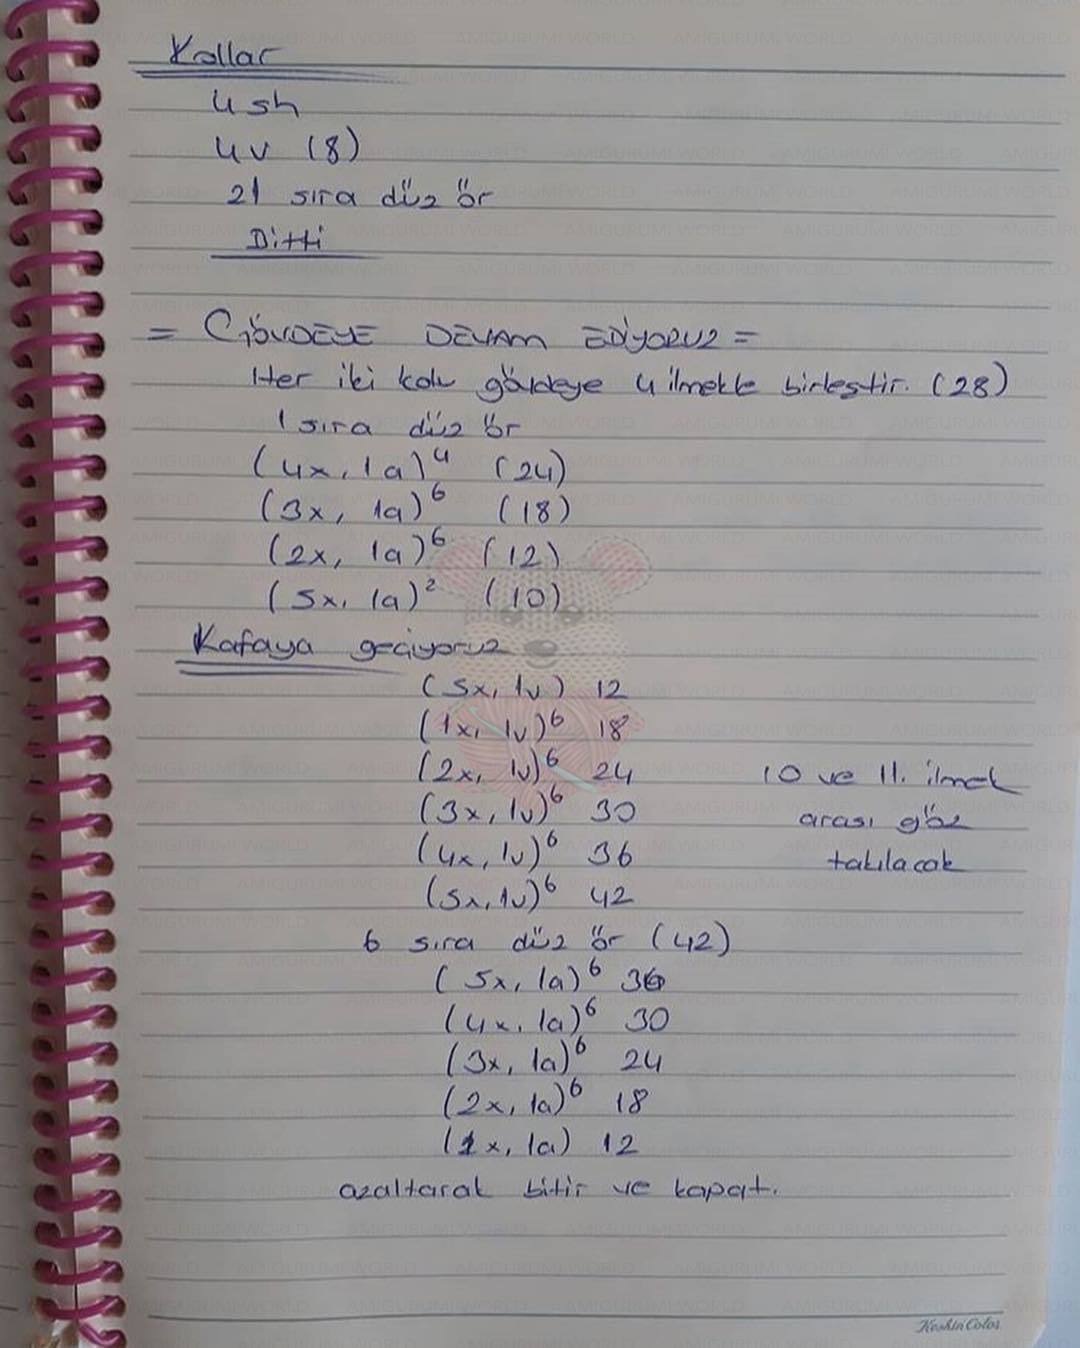 Kollar
4 sh
4v (8)
21 sıra düz ör
Bitti
= GÖVDEYE DEVAM EDİYORUZ =
Her iki kolu gövdeye 4 ilmekle birleştir. (28)
1 sıra düz ör
(4x, 1a)⁴ (24)
(3x, 1a)⁶ (18)
(2x, 1a)⁶ (12)
(5x, 1a)² (10)
Kafaya geçiyoruz
(5x, 1v) 12
(1x, 1v)⁶ 18
(2x, 1v)⁶ 24
(3x, 1v)⁶ 30
(4x, 1v)⁶ 36
(5x, 1v)⁶ 42
10 ve 11. ilmek
arası göz
takılacak
6 sıra düz ör (42)
(5x, 1a)⁶ 36
(4x, 1a)⁶ 30
(3x, 1a)⁶ 24
(2x, 1a)⁶ 18
(1x, 1a) 12
azaltarak bitir ve kapat.
Keskin Color